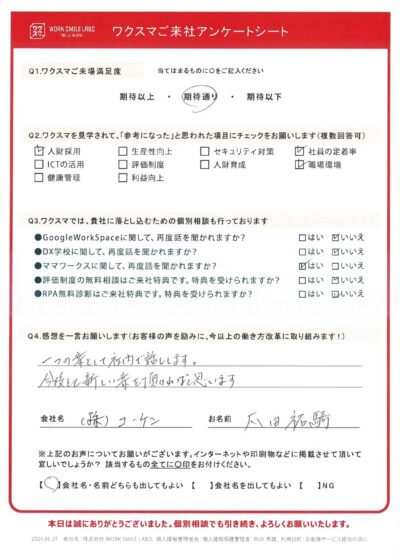 ワクスマ WORK SMILE LABO ワクスマご来社アンケートシート
Q1.ワクスマご来場満足度 当てはまるものに○をご記入ください
期待以上 ・ 期待通り ・ 期待以下
Q2.ワクスマを見学されて、「参考になった」と思われた項目にチェックをお願いします(複数回答可)
☑人財採用 □生産性向上 □セキュリティ対策 ☑社員の定着率
□ICTの活用 □評価制度 □人財育成 ☑職場環境
□健康管理 □利益向上
Q3.ワクスマでは、貴社に落とし込むための個別相談も行っております
●GoogleWorkSpaceに関して、再度話を聞かれますか? □はい ☑いいえ
●DX学校に関して、再度話を聞かれますか? □はい ☑いいえ
●ママワークスに関して、再度話を聞かれますか? ☑はい □いいえ
●評価制度の無料相談はご来社特典です。特典を受けられますか? □はい ☑いいえ
●RPA無料診断はご来社特典です。特典を受けられますか? □はい ☑いいえ
Q4.感想を一言お願いします(お客様の声を励みに、今以上の働き方改革に取り組みます!)
一つの案として社内で話します。
今後とも新しい案を頂ければと思います
会社名 (株)コーケン お名前 田祐騎
※上記のお声についてお願いがございます。インターネットや印刷物などに掲載させて頂いて
宜しいでしょうか? 該当するもの全てに〇印をお付けください。
【○】会社名・名前どちらも出してもよい 【 】会社名を出してもよい 【 】NG
本日は誠にありがとうございました。個別相談でも引き続き、よろしくお願いいたします。
会社名:株式会社 WORK SMILE LABO、個人情報管理者名:個人情報保護管理者: